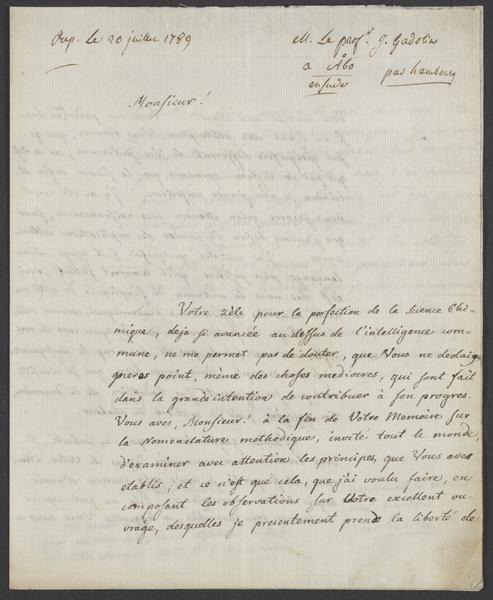 Rep. le 20 juillet 1789
M. Le prof.r J. Gadolin
a Åbo
en suede
par hambourg
Monsieur!
Votre zèle pour la perfection de la Science Chi-
mique, deja si avancée au dessus de l'intelligence com-
mune, ne me permet pas de douter, que Vous ne dedaig
neres point, même des choses mediocres, qui sont fait
dans la grande intention de contribuer à son progres.
Vous aves, Monsieur! à la fin de Votre Memoire sur
la Nomenclature méthodique, invité tout le monde,
d'examiner avec attention les principes, que Vous aves
etablis, et ce n'est que cela, que j'ai voulu faire, en
composant les observations sur Votre excellent ou-
vrage, desquelles je presentement prends la liberté de